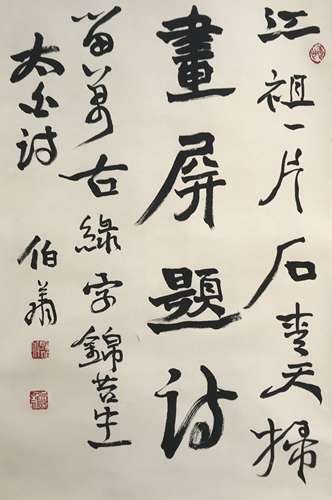 江祖一片石青天掃
畫屏題詩
留萬古綠字錦苔生
太白詩
伯